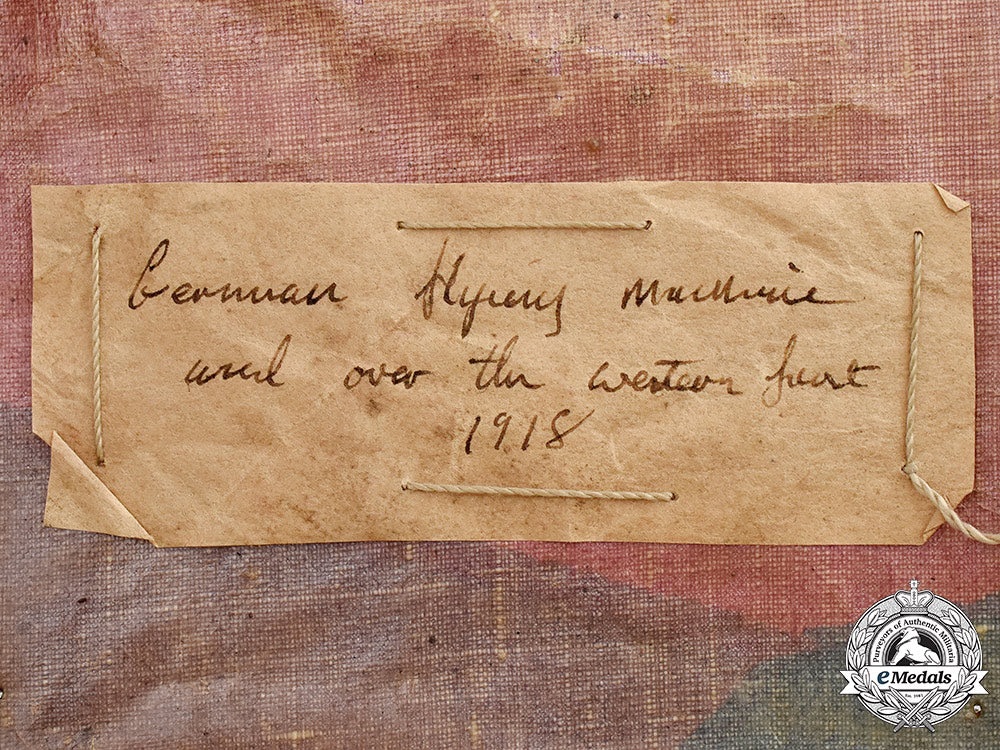 German Flying Machine
used over the western front
1918
Purveyors of Authentic Militaria
eMedals
Est. 1987